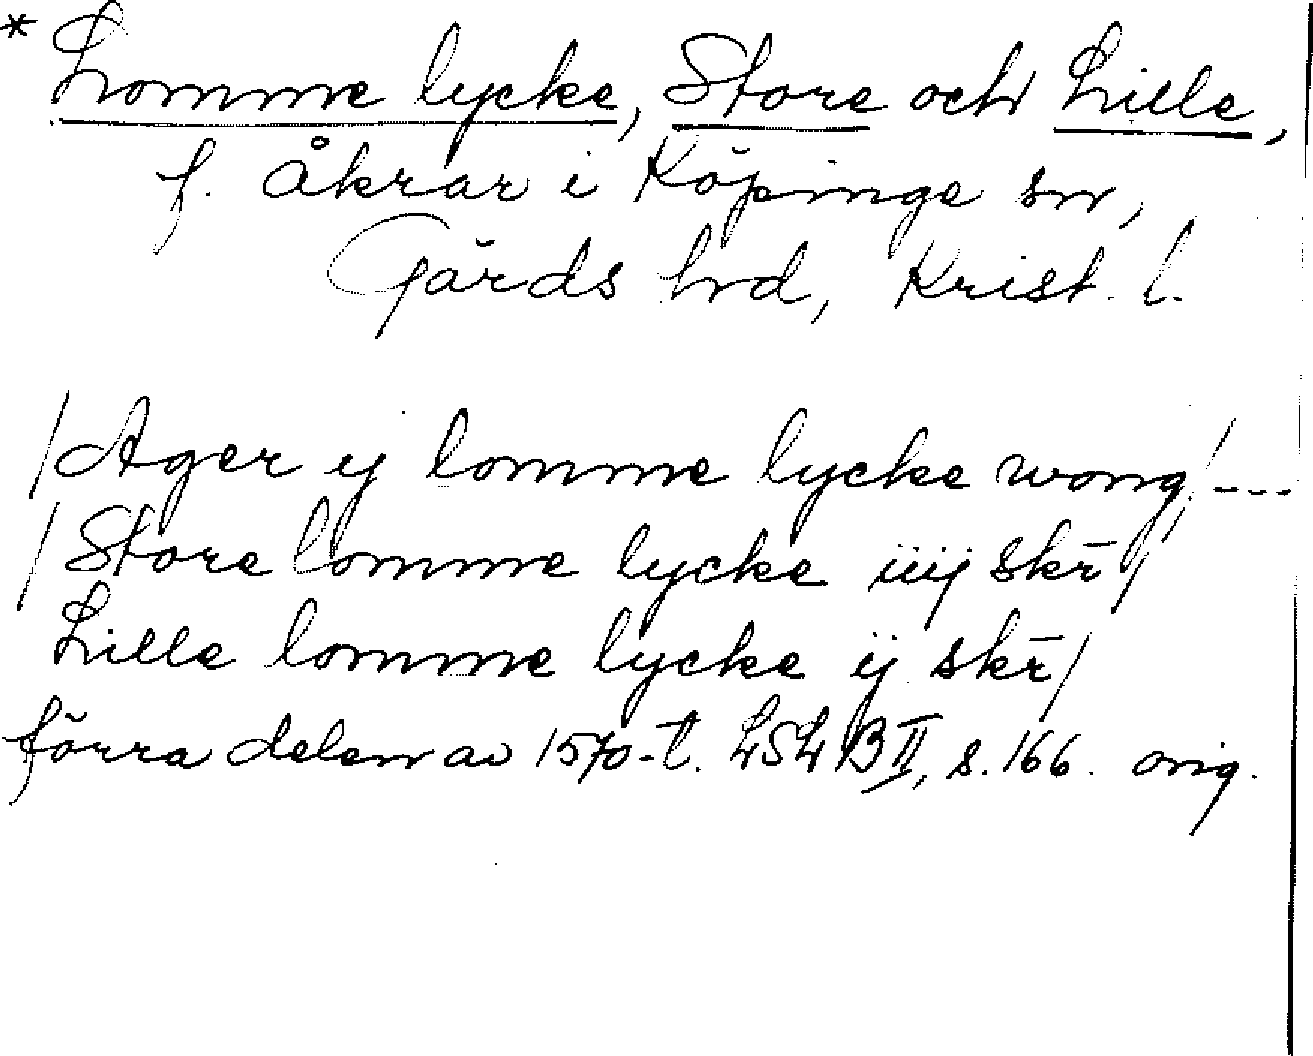 * Lomme lycke, Store och Lille,
f. åkrar i Köpinge sn,
Gärds hrd, Krist. l.
/Ager ij lomme lycke wong/ ---
/Store lomme lycke iiij skr̄/
Lille lomme lycke ij skr̄/
förra delen av 1570-t. LSL B II, s. 166. orig.